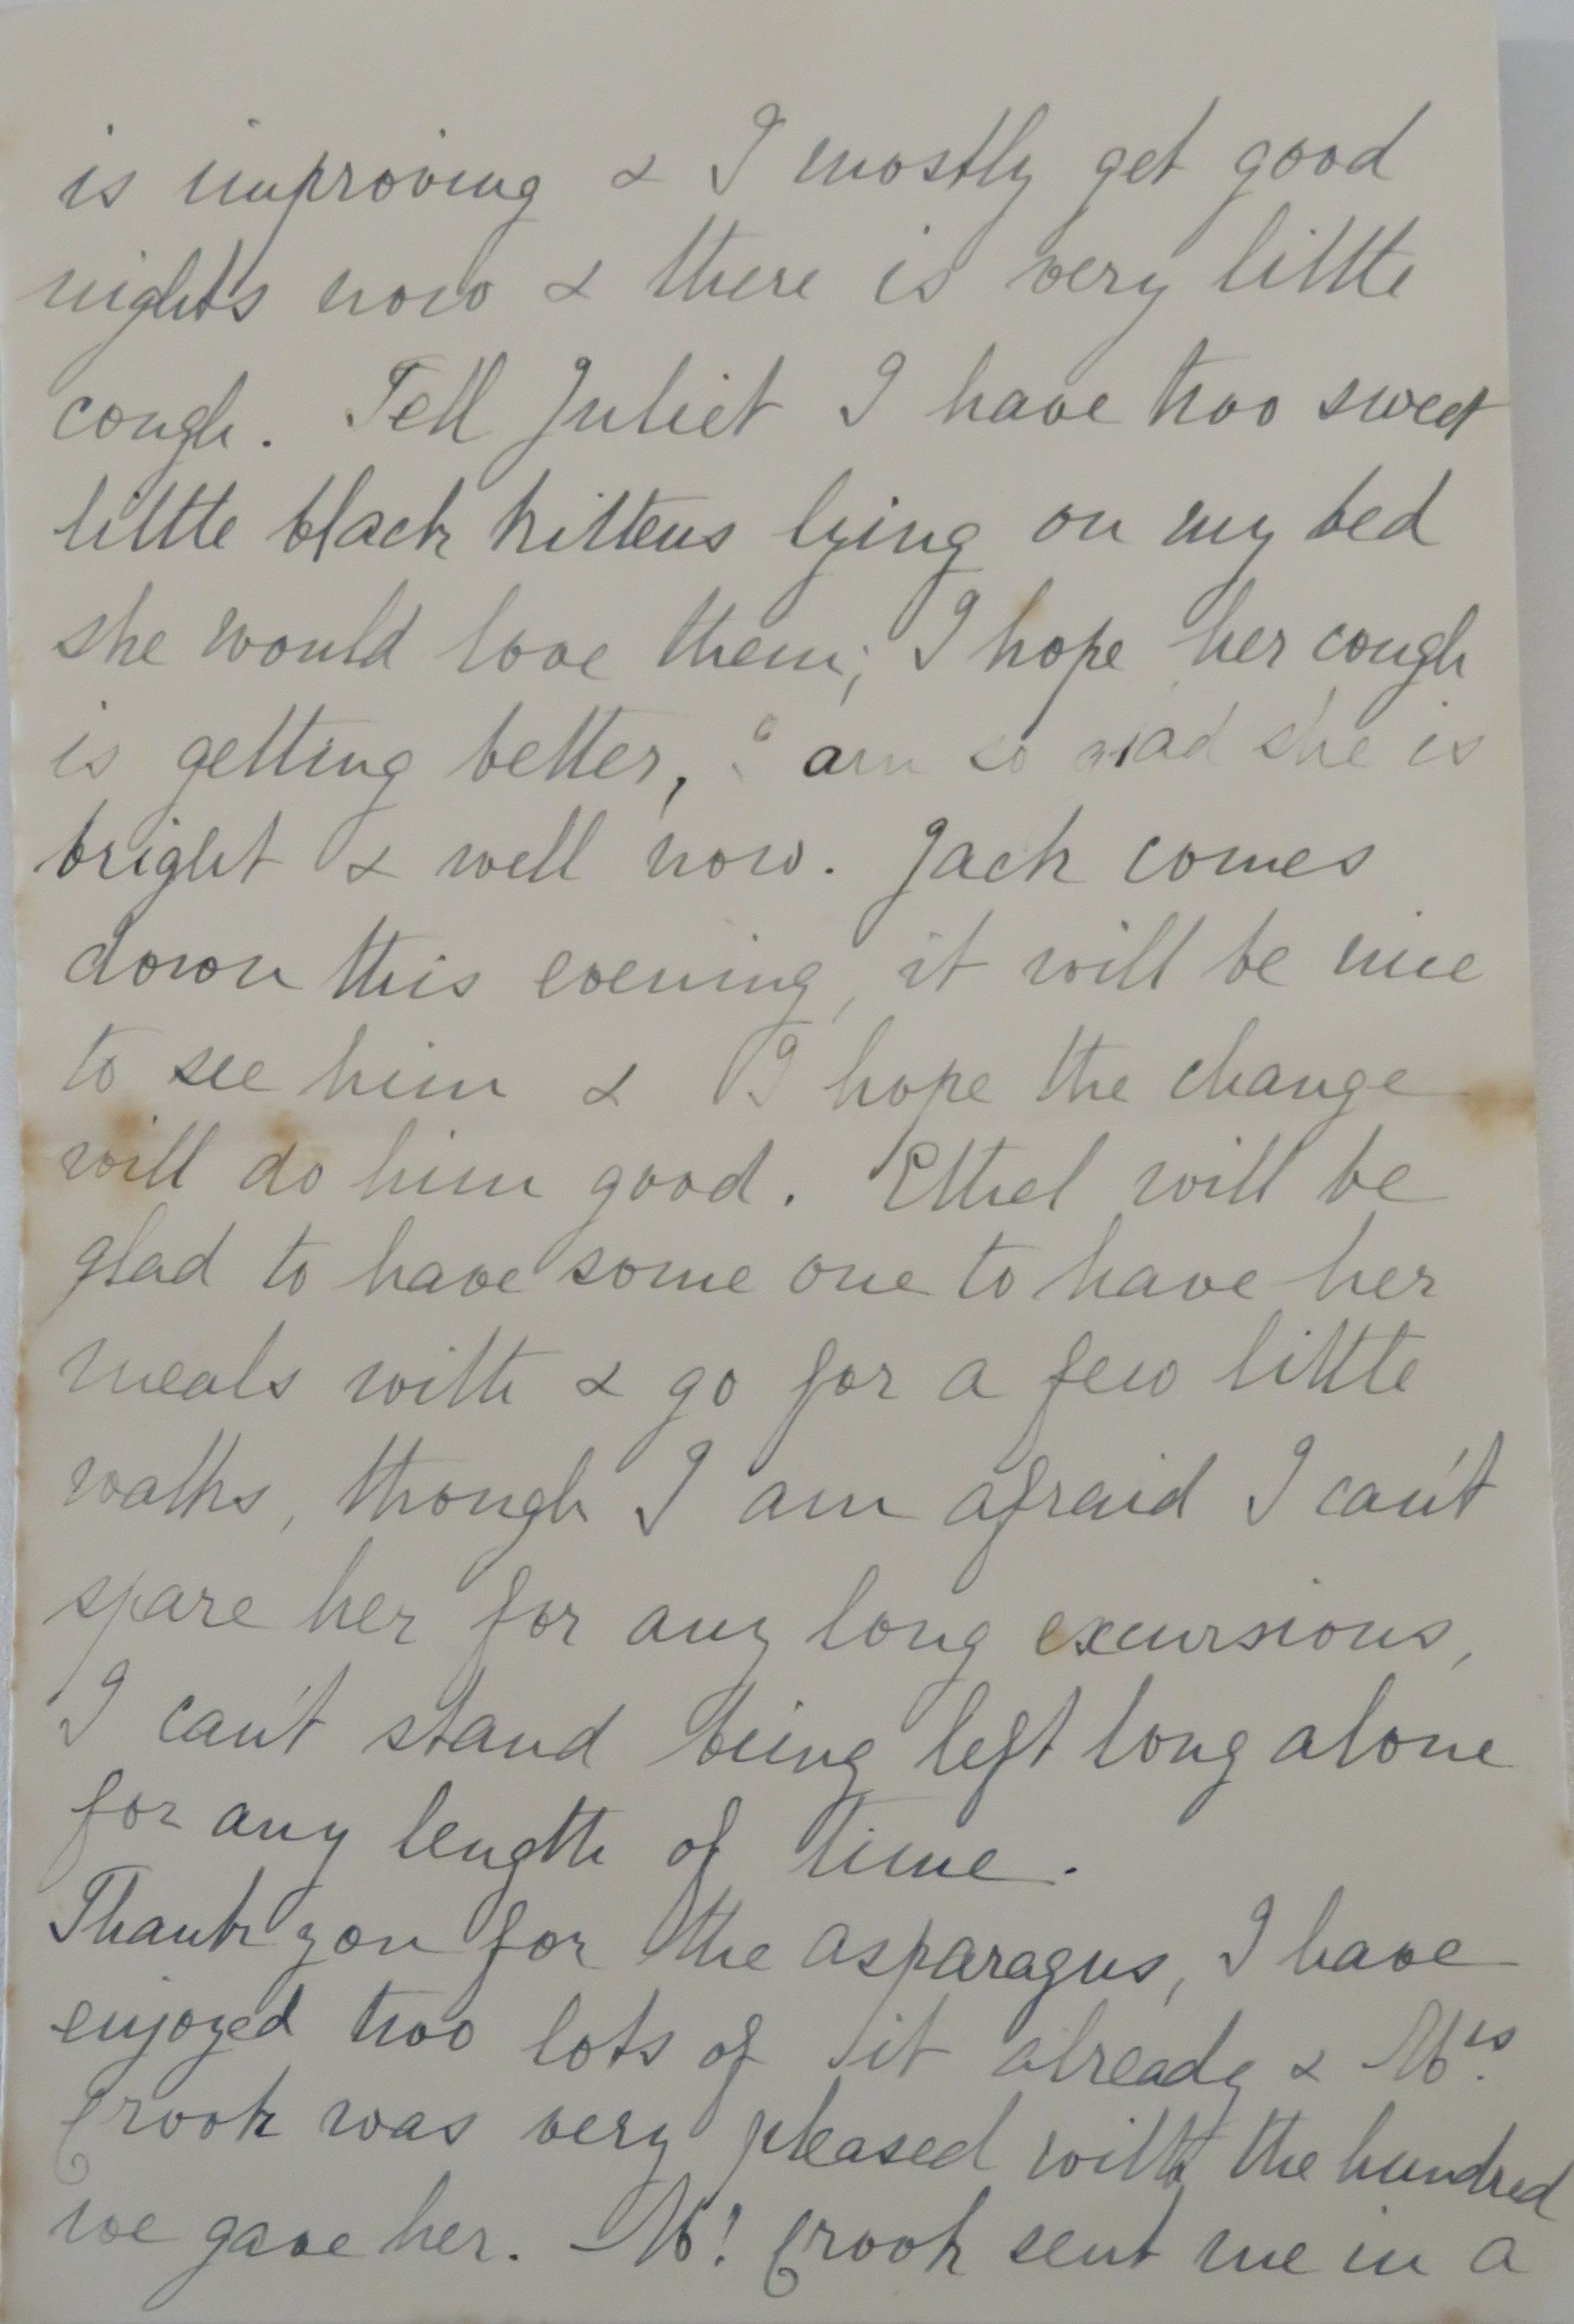 is improving & I mostly get good
nights now & there is very little
cough. Tell Juliet I have two sweet
little black kittens lying on my bed
she would love them; I hope her cough
is getting better, I am so glad she is
bright & well now. Jack comes
down this evening, it will be nice
to see him & I hope the change
will do him good. Ethel will be
glad to have some one to have her
meals with & go for a few little
walks, though I am afraid I can't
spare her for any long excursions,
I can't stand being left long alone
for any length of time.
Thank you for the asparagus, I have
enjoyed two lots of it already & Mrs.
Crook was very pleased with the hundred
we gave her. Mr. Crook sent me in a